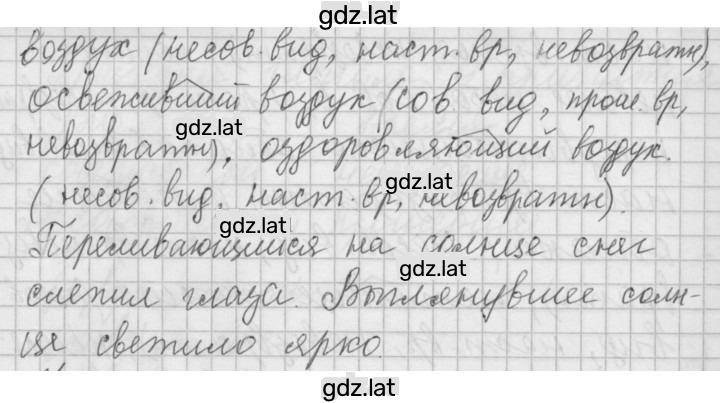 gdz.lat
воздух (несов. вид, наст. вр, невозвратн),
освеживший воздух (сов. вид, прош. вр,
gdz.lat
невозвратн), оздоровляющий воздух.
gdz.lat
(несов. вид. наст. вр, невозвратн).
gdz.lat
Переливающийся на солнце снег
gdz.lat
слепил глаза. Выглянувшее солн-
це светило ярко.
gdz.lat